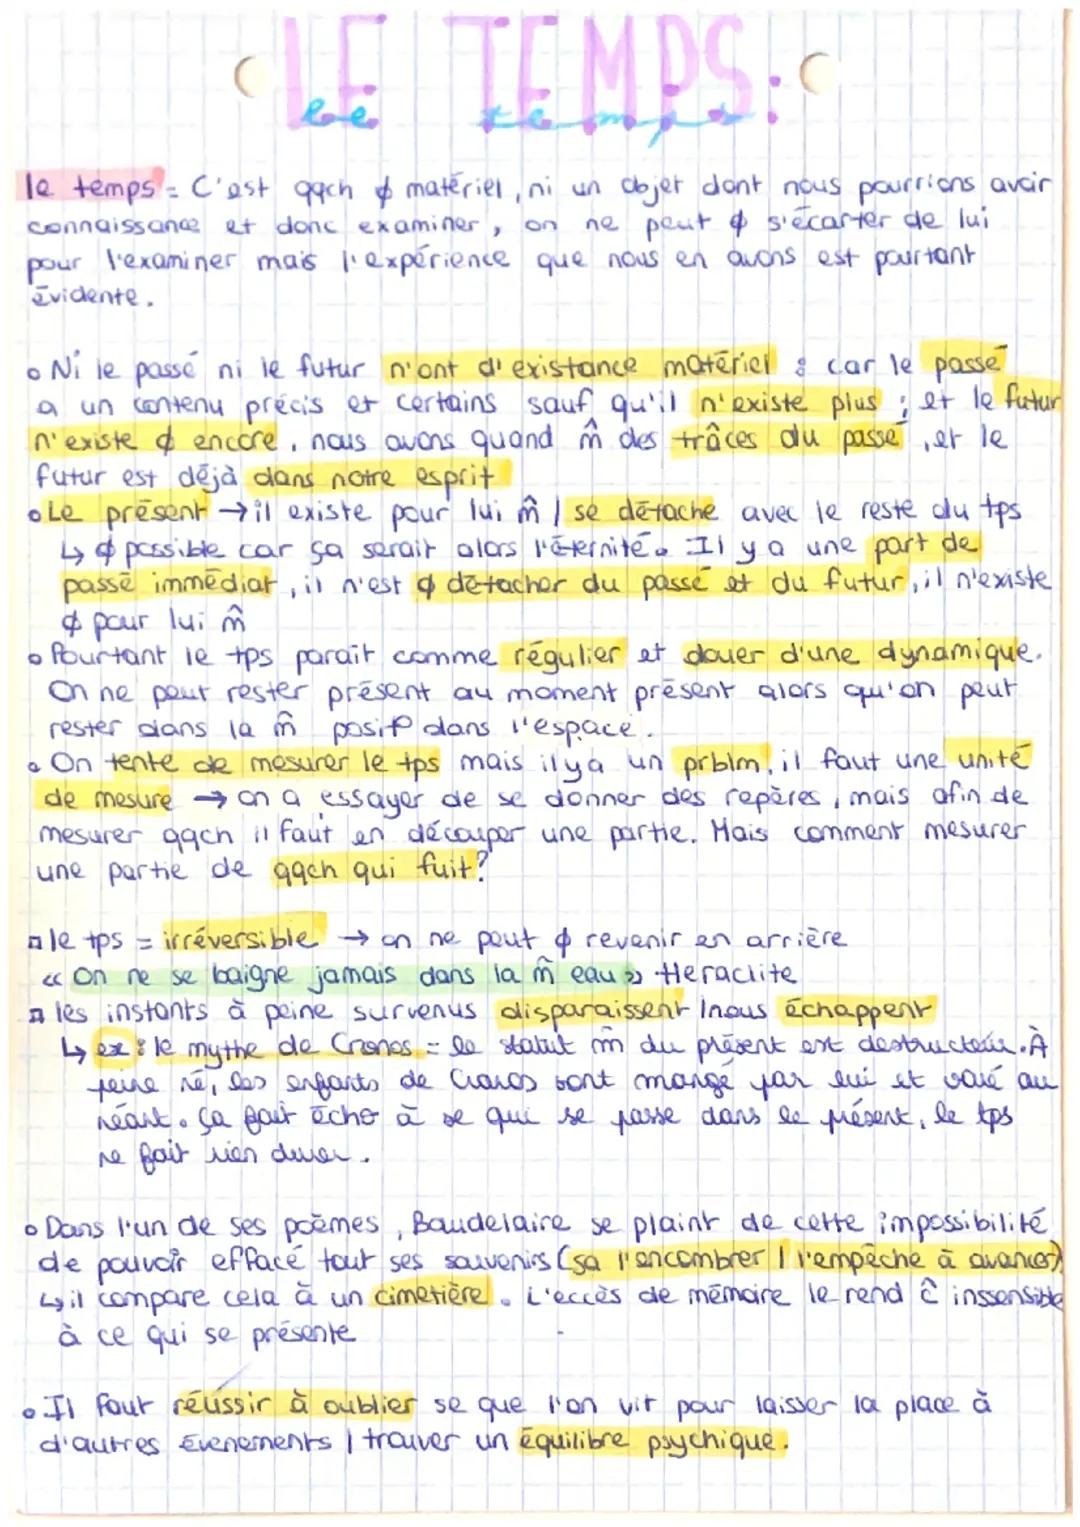 LE TEMPS:
le temps
le temps = C'est qqch ϕ matériel, ni un objet dont nous pourrions avoir
connaissance et donc examiner, on ne peut ϕ s'écarter de lui
pour l'examiner mais l'expérience que nous en avons est pourtant
évidente.
o Ni le passé ni le futur n'ont d'existance matériel : car le passé
a un contenu précis et certains sauf qu'il n'existe plus ; et le futur
n'existe ϕ encore, nous avons quand m̂ des trâces du passé, et le
futur est déjà dans notre esprit
o Le présent → il existe pour lui m̂ / se détache avec le reste du tps
↳ ϕ possible car ça serait alors l'éternité. Il y a une part de
passé immédiat, il n'est ϕ détacher du passé et du futur, il n'existe
ϕ pour lui m̂
o Pourtant le tps paraît comme régulier et douer d'une dynamique.
On ne peut rester présent au moment présent alors qu'on peut
rester dans la m̂ posit° dans l'espace.
o On tente de mesurer le tps mais il y a un prblm, il faut une unité
de mesure → on a essayer de se donner des repères, mais afin de
mesurer qqch il faut en découper une partie. Mais comment mesurer
une partie de qqch qui fuit?
▫ le tps = irréversible → on ne peut ϕ revenir en arrière
« On ne se baigne jamais dans la m̂ eau » Heraclite
▫ les instants à peine survenus disparaissent / nous échappent
↳ ex : le mythe de Cronos = le statut m̂ du présent est destructeur. À
peine né, les enfants de Cronos sont mangé par lui et voué au
néant. Ça fait écho à se qui se passe dans le présent, le tps
ne fait rien durer.
o Dans l'un de ses poèmes, Baudelaire se plaint de cette impossibilité
de pouvoir effacé tout ses souvenirs (sa l'encombrer / l'empêche à avancer)
↳ il compare cela à un cimetière. L'eccès de mémoire le rend ĉ inssensible
à ce qui se présente
o Il faut réussir à oublier se que l'on vit pour laisser la place à
d'autres évenements / trouver un équilibre psychique.